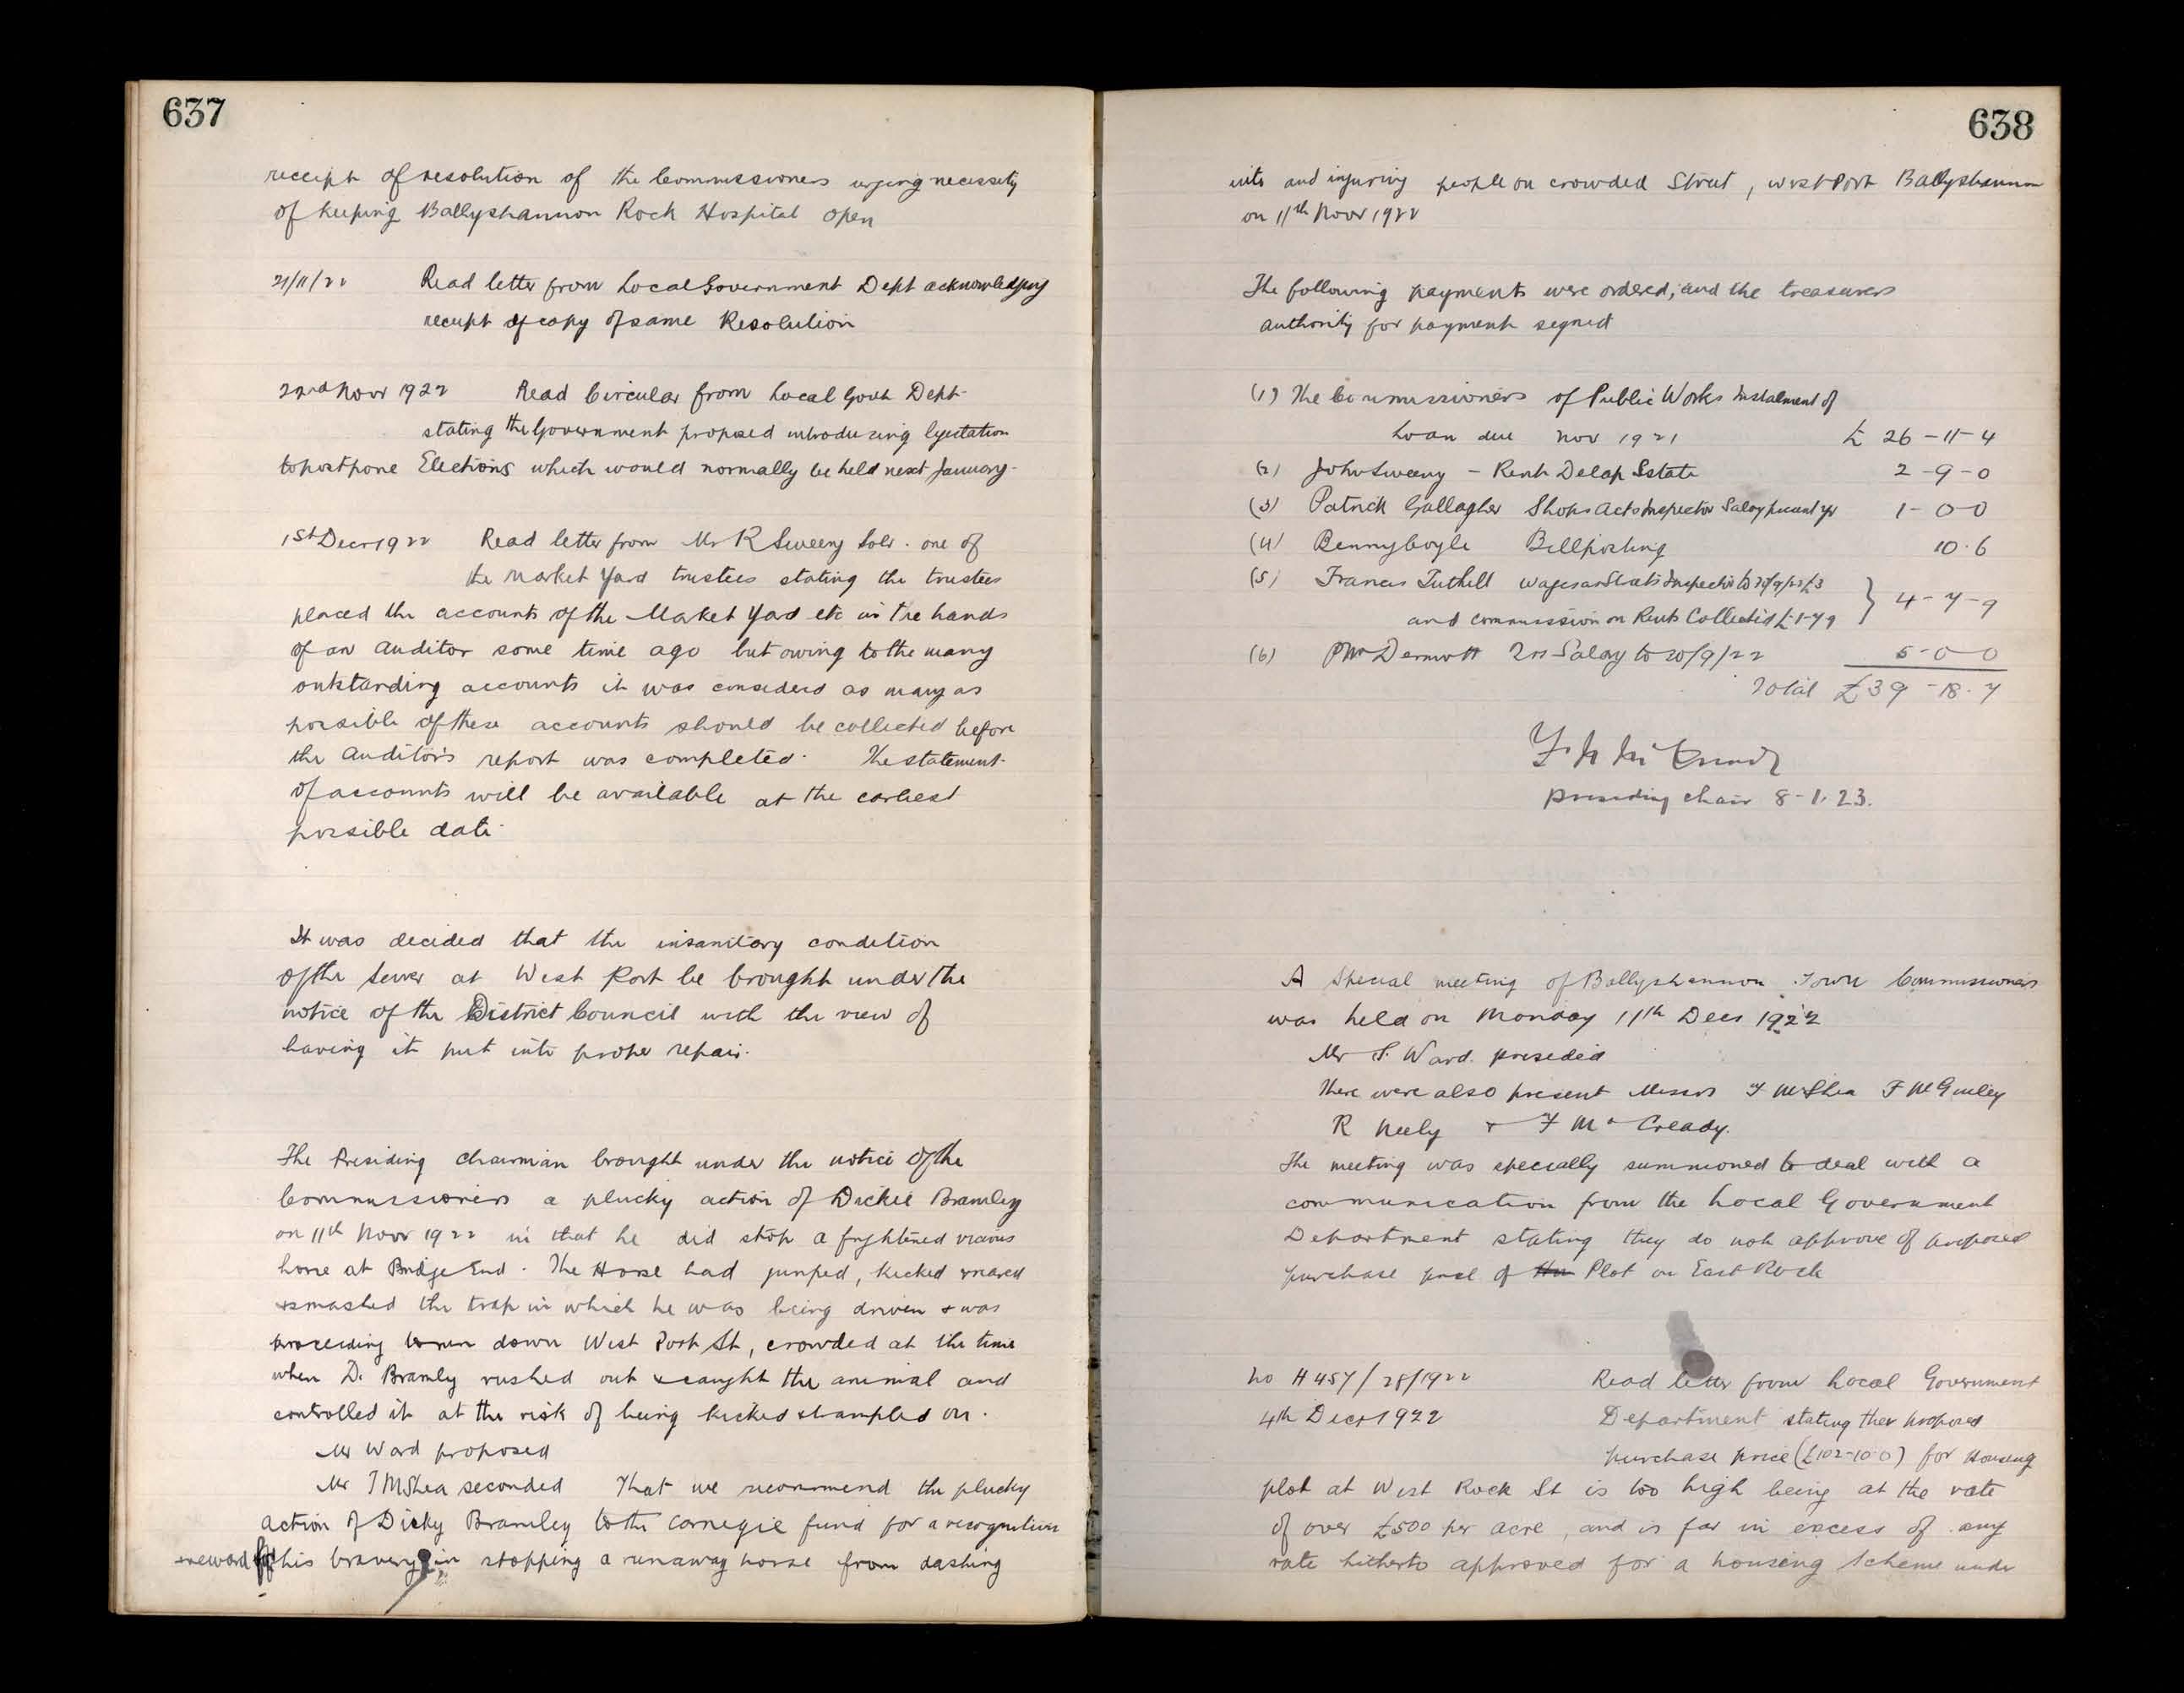 637
receipt of resolution of the Commissioners urging necessity
of keeping Ballyshannon Rock Hospital open
21/11/22 Read letter from Local Government Dept acknowledging
receipt of copy of same Resolution
22nd Novr 1922 Read Circular from Local Govt Dept
stating the Government proposed introducing
to postpone Elections which would normally be held next January.
1st Decr 1922 Read letter from Mr R Sweeny Solr. one of
the Market Yard trustees stating the trustees
placed the accounts of the Market Yard etc in the hands
of an auditor some time ago but owing to the many
outstanding accounts it was considerd as many as
possible of these accounts should be collected before
the Auditors report was completed. The statement
of accounts will be available at the earliest
possible date.
It was decided that the insanitary condition
of the sewer at West Port be brought under the
notice of the District Council with the view of
having it put into proper repair.
The Presiding Chairman brought under the notice of the
Commissioners a plucky action of Dickie Bramley
on 11th Novr 1922 in that he did stop a frightened vicious
horse at Bridge End. The Horse had jumped, kicked & reared
& smashed the trap in which he was being driven & was
proceeding to run down West Port St, crowded at the time
when D. Bramly rushed out & caught the animal and
controlled it at the risk of being kicked & trampled on.
Mr Ward proposed
Mr T McShea seconded That we recommend the plucky
action of Dicky Bramley to the Carnegie fund for a recognition
& reward for his bravery in stopping a runaway horse from dashing
638
into and injuring people on crowded Street, West Port Ballyshannon
on 11th Novr 1922
The following payments were ordered, and the treasurers
authority for payment signed
(1) The Commissioners of Public Works Instalment of
Loan due Nov 1921 £ 26-11-4
(2) John Sweeny - Rent Delap Estate 2-9-0
(3) Patrick Gallagher Shops Acts Inspector Salary yr 1-0-0
(4) Benny Coyle Billposting 10.6
(5) Francis Tuthill wages as Streets Inspector to £3
and commission on Rents Collected £1-7-9 } 4-7-9
(6) P McDermott Salary to 20/9/22 5-0-0
Total £39-18.7
presiding chair 8-1.23.
A Special meeting of Ballyshannon Town Commissioners
was held on Monday 11th Decr 1922
Mr S. Ward. presided
There were also present Messrs T McShea F McGinley
R Neely & F McCready.
The meeting was specially summoned to deal with a
communication from the Local Government
Department stating they do not approve of proposed
purchase price of the Plot on East Rock
No H 457/28/1922 Read letter from Local Government
4th Decr 1922 Department stating proposed
purchase price (£102-10-0) for Housing
plot at West Rock St is too high being at the rate
of over £500 per acre, and is far in excess of any
rate hitherto approved for a housing Scheme under